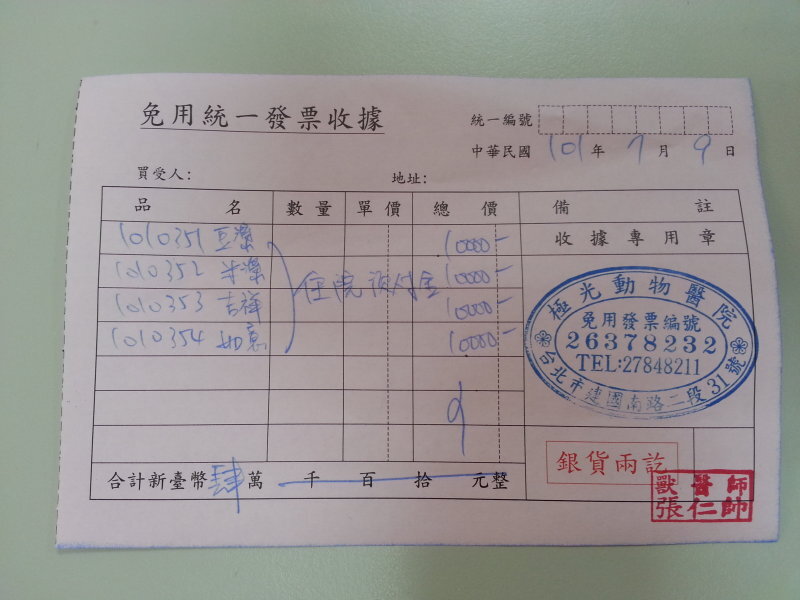 免用統一發票收據
統一編號
中華民國 101 年 7 月 9 日
買受人: 地址:
品名 數量 單價 總價 備註
1010351 豆漿 10000-
收據專用章
1010352 米漿 10000-
住院預付金
1010353 吉祥 10000-
1010354 如意 10000-
極光動物醫院
免用發票編號
26378232
TEL:27848211
台北市建國南路二段31號
銀貨兩訖
合計新臺幣肆萬 千 百 拾 元整
獸醫師
張仁帥